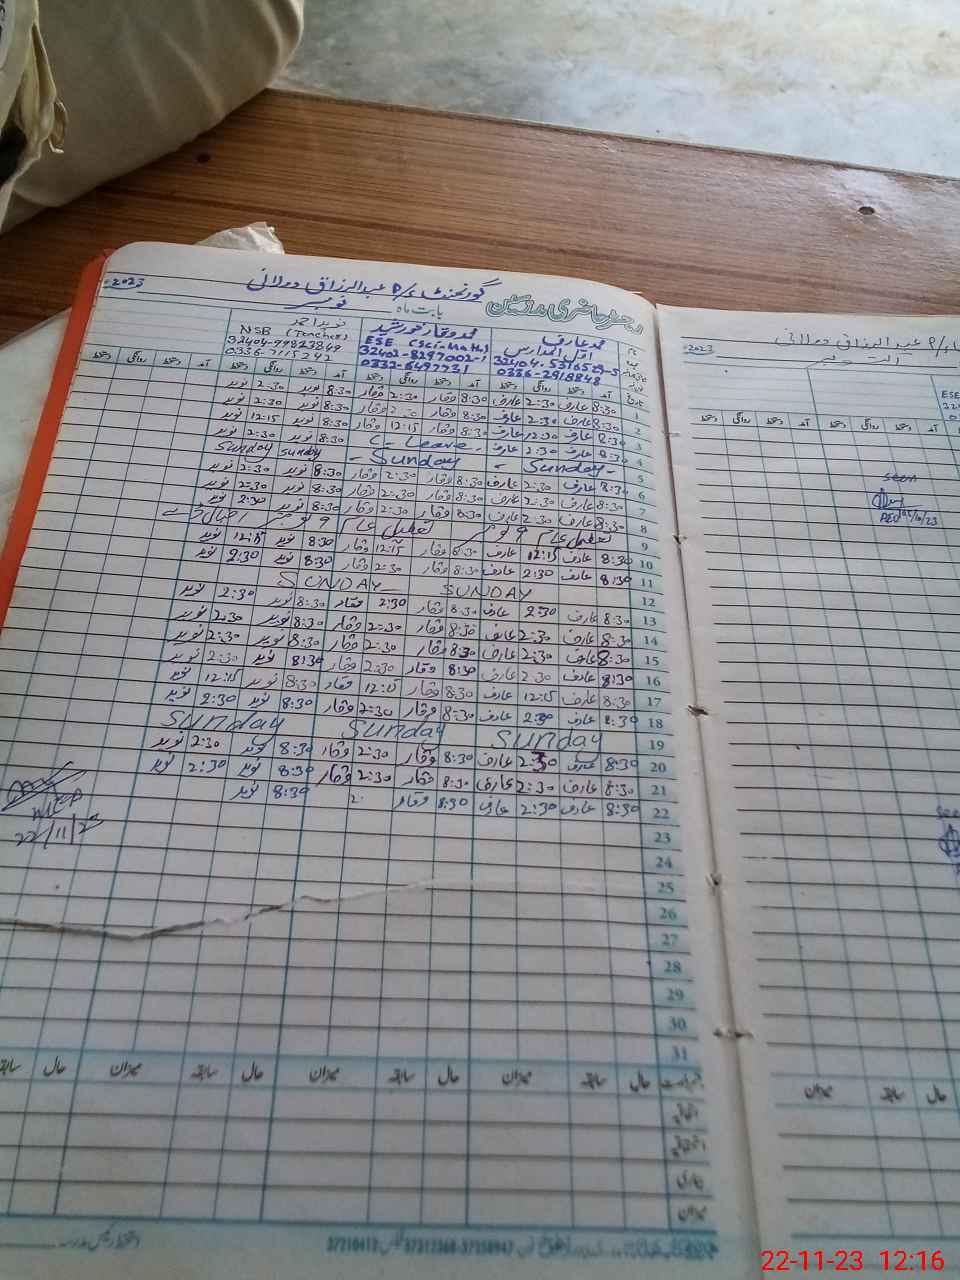 رجسٹر حاضری مدرسین
گورنمنٹ P/S عبدالرزاق دولانی
بابت ماہ نومبر 2023
محمد عارف
اول المدارس
32404-5316529-5
0336-2918848
محمد وقار خورشید
ESE (Sci-Math)
32402-8297002-1
0332-6497731
نوید احمد
NSB (Teacher)
32404-99823849
0336-7115242
آمد دستخط روانگی دستخط آمد دستخط روانگی دستخط آمد دستخط روانگی دستخط آمد دستخط روانگی دستخط
1 8:30 عارف 2:30 عارف 8:30 وقار 2:30 وقار 8:30 نوید 2:30 نوید
2 8:30 عارف 2:30 عارف 8:30 وقار 2:30 وقار 8:30 نوید 2:30 نوید
3 8:30 عارف 12:30 عارف 8:30 وقار 12:15 وقار 8:30 نوید 12:15 نوید
4 8:30 عارف 2:30 عارف C-Leave 8:30 نوید 2:30 نوید
5 - Sunday - - Sunday Sunday Sunday
6 8:30 عارف 2:30 عارف 8:30 وقار 2:30 وقار 8:30 نوید 2:30 نوید
7 8:30 عارف 2:30 عارف 8:30 وقار 2:30 وقار 8:30 نوید 2:30 نوید
8 8:30 عارف 2:30 عارف 8:30 وقار 2:30 وقار 8:30 نوید 2:30 نوید
9 تعطیل عام 9 نومبر تعطیل عام 9 نومبر اقبال ڈے
10 8:30 عارف 12:15 عارف 8:30 وقار 12:15 وقار 8:30 نوید 12:15 نوید
11 8:30 عارف 2:30 عارف 8:30 وقار 2:30 وقار 8:30 نوید 2:30 نوید
12 SUNDAY SUNDAY
13 8:30 عارف 2:30 عارف 8:30 وقار 2:30 وقار 8:30 نوید 2:30 نوید
14 8:30 عارف 2:30 عارف 8:30 وقار 2:30 وقار 8:30 نوید 2:30 نوید
15 8:30 عارف 2:30 عارف 8:30 وقار 2:30 وقار 8:30 نوید 2:30 نوید
16 8:30 عارف 2:30 عارف 8:30 وقار 2:30 وقار 8:30 نوید 2:30 نوید
17 8:30 عارف 12:15 عارف 8:30 وقار 12:15 وقار 8:30 نوید 12:15 نوید
18 8:30 عارف 2:30 عارف 8:30 وقار 2:30 وقار 8:30 نوید 2:30 نوید
19 Sunday Sunday Sunday
20 8:30 عارف 2:30 عارف 8:30 وقار 2:30 وقار 8:30 نوید 2:30 نوید
21 8:30 عارف 2:30 عارف 8:30 وقار 2:30 وقار 8:30 نوید 2:30 نوید
22 8:30 عارف 2:30 عارف 8:30 وقار 2: 8:30 نوید
22/11/23
23
24
25
26
27
28
29
30
31
حال سابقہ میزان حال سابقہ میزان حال سابقہ میزان حال سابقہ
اتفاقیہ
بیماری
میزان
دستخط رئیس مدرسہ
2023
عبدالرزاق دولانی
ESE
دستخط روانگی دستخط آمد دستخط روانگی دستخط آمد
seen
see
حال سابقہ میزان
22-11-23 12:16